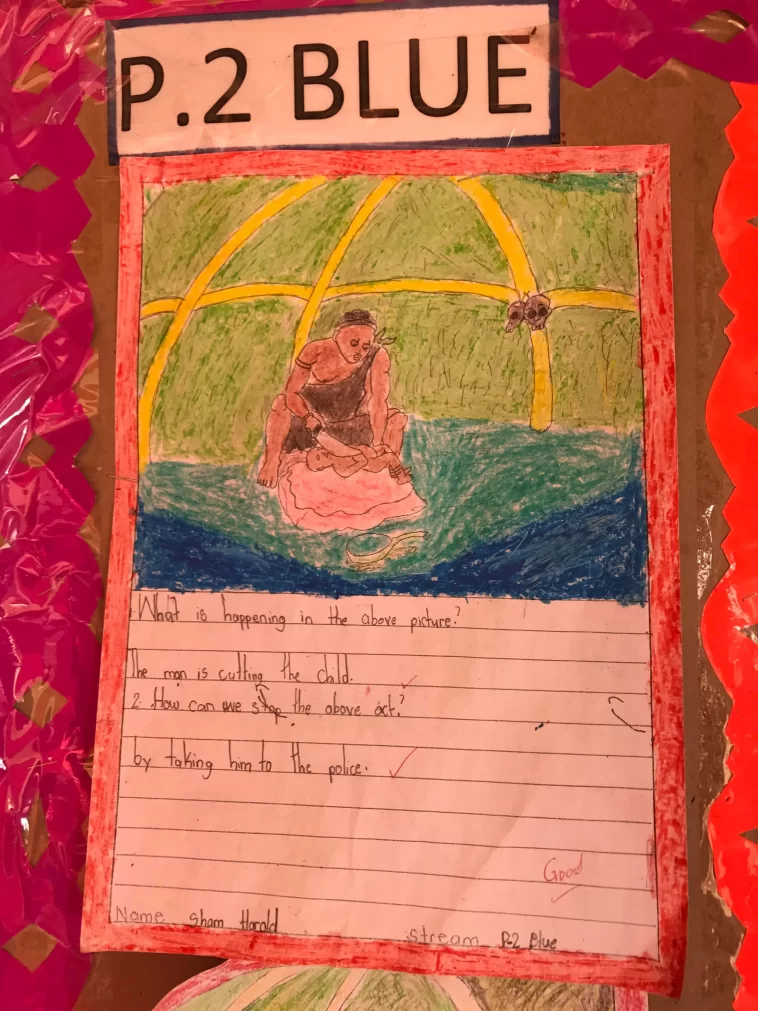 P.2 BLUE
1. What is happening in the above picture?
The man is cutting the child.
2. How can we stop the above act?
by taking him to the police.
Good
Name Sham Harold
Stream P.2 Blue